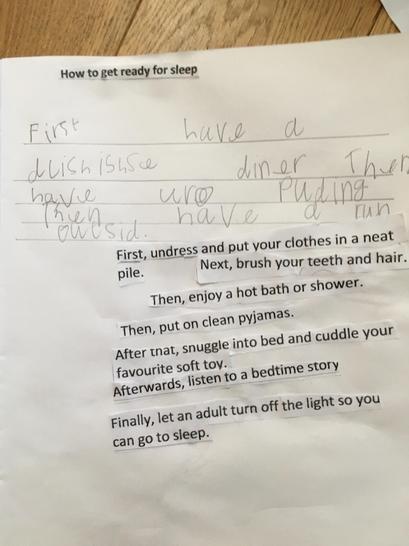 How to get ready for sleep
First have a
dlishishse diner Then
have uro Puding
Then have a run
outsid.
First, undress and put your clothes in a neat
pile. Next, brush your teeth and hair.
Then, enjoy a hot bath or shower.
Then, put on clean pyjamas.
After that, snuggle into bed and cuddle your
favourite soft toy.
Afterwards, listen to a bedtime story
Finally, let an adult turn off the light so you
can go to sleep.